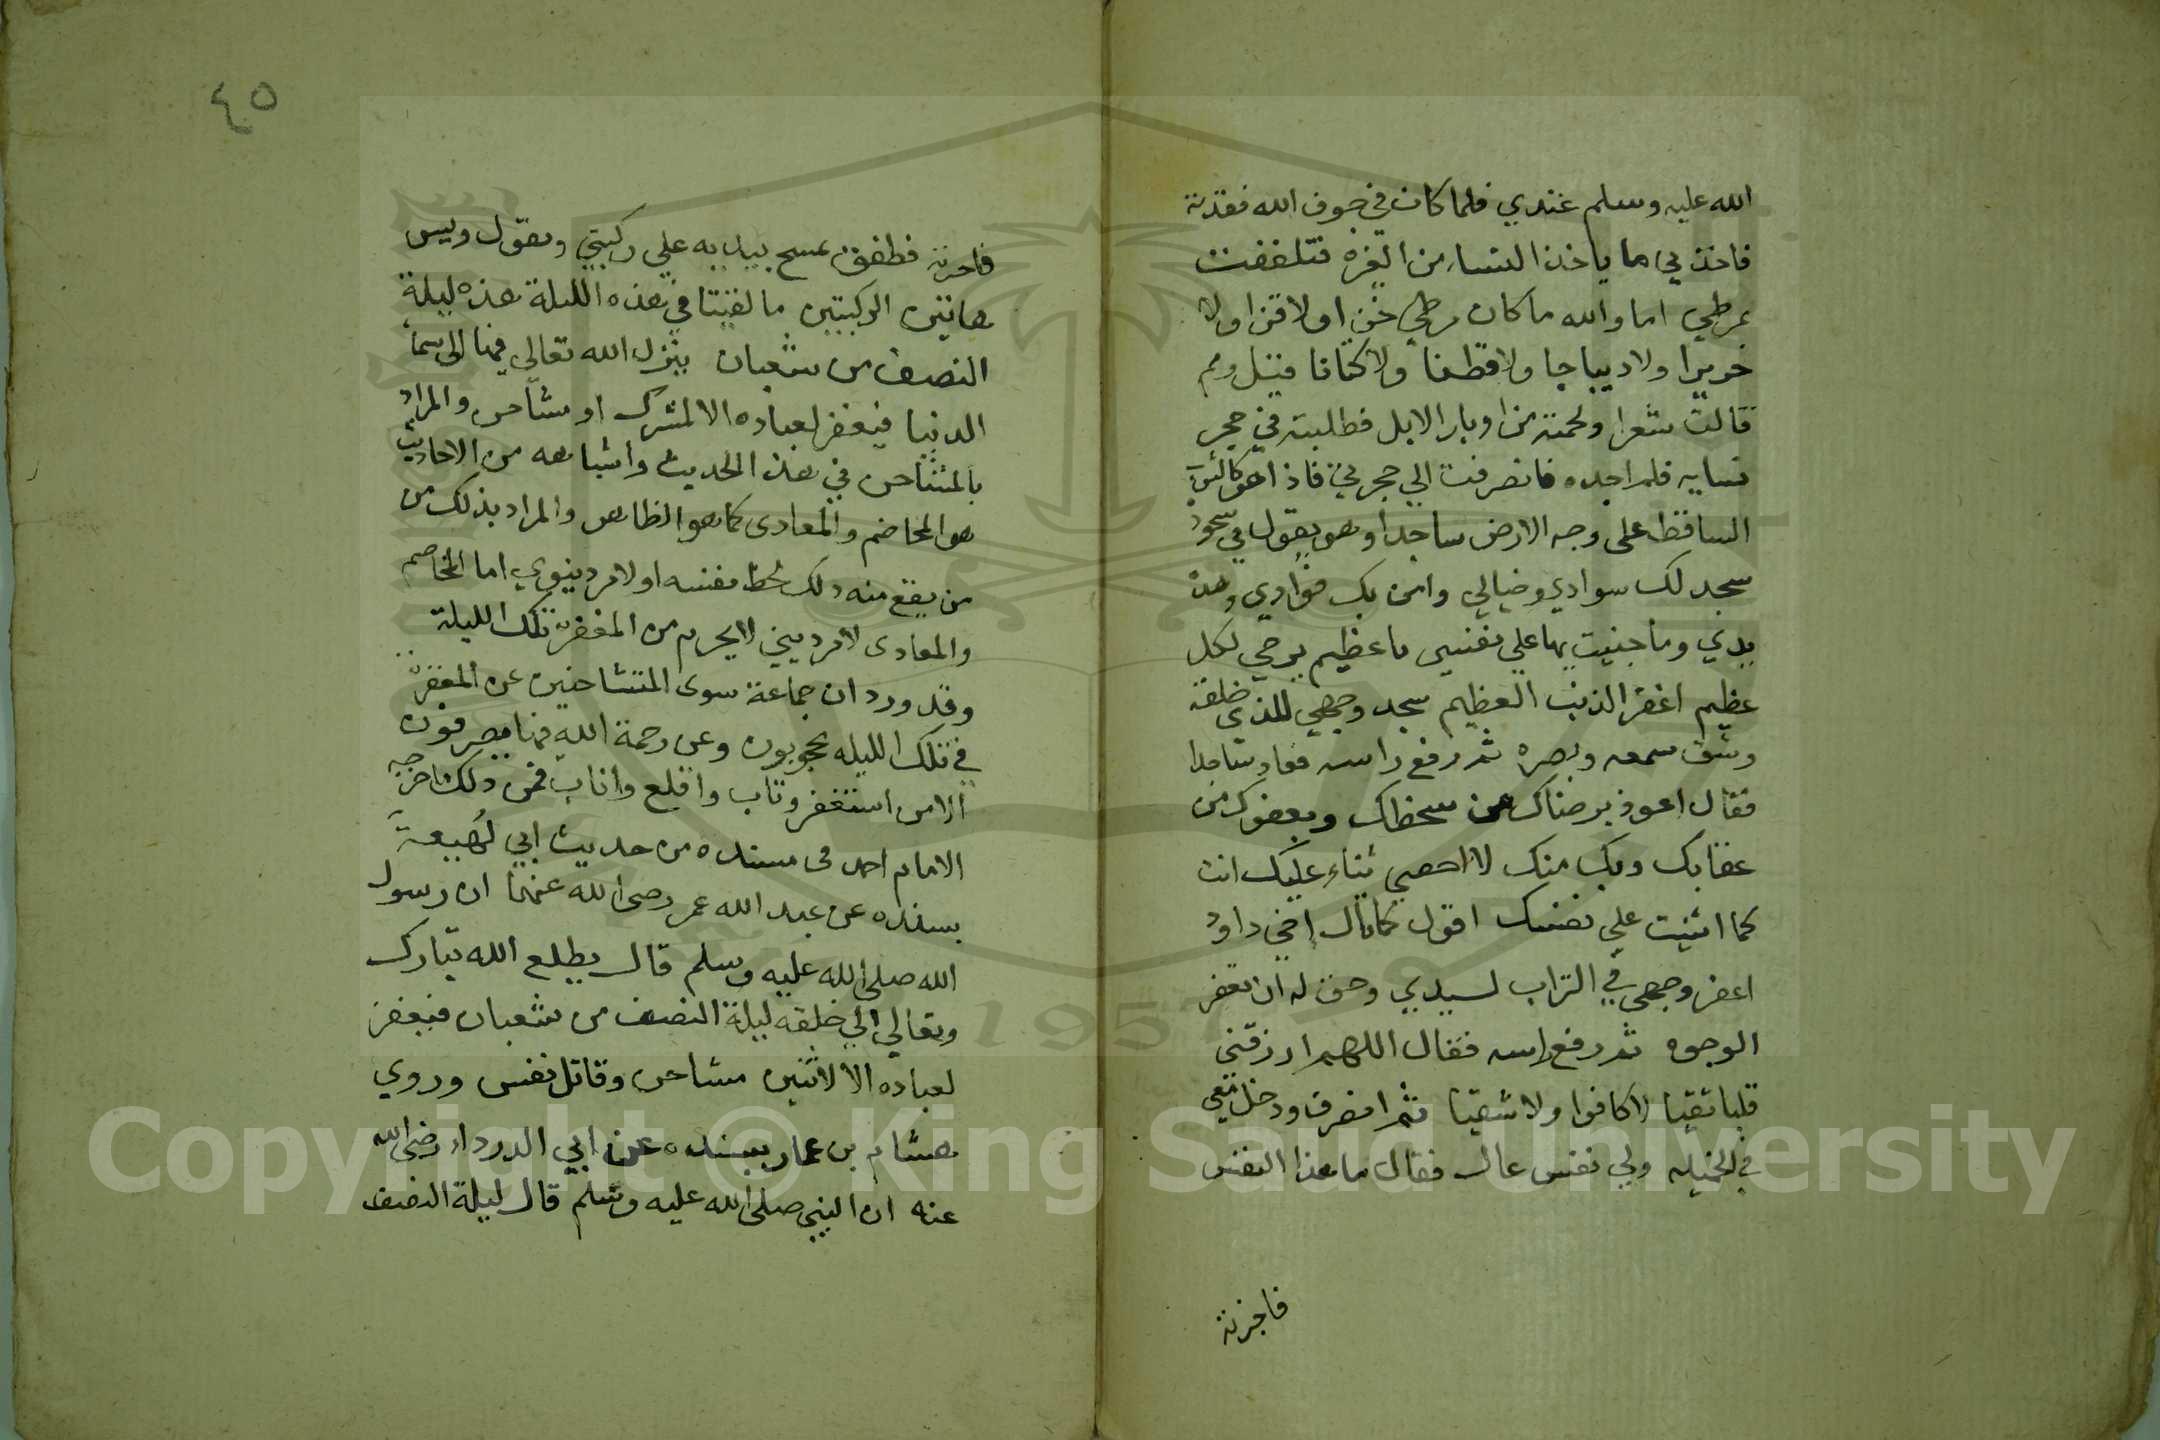 الله عليه وسلم عندي فلما كان في جوف الله فقدته
فاخذني ما ياخذ النساء من الغيره فتلففت
بمرطي اما والله ما كان مرطي خز اولا قزا ولا
حريرا ولا ديباجا ولا قطنا ولا كتانا فقيل ومم
قالت شعرا ولحمته من اوبار الابل فطلبته في حجر
نسايه فلم اجده فانصرفت الي حجرتي فاذا هو كالثوب
الساقط على وجه الارض ساجدا وهو يقول في سجوده
سجد لك سوادي وخيالي وامن بك فوادي وهذه
يدي وما جنيت بها علي نفسي يا عظيم يرجي لكل
عظيم اغفر الذنب العظيم سجد وجهي للذي خلقه
وشق سمعه وبصره ثم رفع راسه فعاد ساجدا
فقال اعوذ برضاك من سخطك وبعفوك من
عقابك وبك منك لا احصي ثناء عليك انت
كما اثنيت علي نفسك اقول كما قال اخي داود
اعفر وجهي في التراب لسيدي وحق له ان تعفر
الوجوه ثم رفع راسه فقال اللهم ارزقني
قلبا تقيا لا كافرا ولا شقيا ثم انصرف ودخل معي
في الخميله ولي نفس عال فقال ما هذا النفس
فاخبرته
٤٥
فاخبرته فطفق يمسح بيديه علي ركبتي ويقول ويس
هاتين الركبتين ما لقيتا في هذه الليلة هذه ليلة
النصف من شعبان ينزل الله تعالي فيها الي سما
الدنيا فيغفر لعباده الا لمشرك او مشاحن والمراد
بالمشاحن في هذا الحديث واشباهه من الاحاديث
هو المخاصم والمعادى كما هو الظاهر والمراد بذلك من
من يقع منه ذلك لحظ نفسه اولامر دنيوي اما المخاصم
والمعادى لامر ديني لا يحرم من المغفرة تلك الليلة
وقد ورد ان جماعة سوى المتشاحنين عن المغفرة
في تلك الليله محجوبون وعن رحمة الله فيها مصرفون
الا من استغفر وتاب واقلع واناب فمن ذلك ما اخرجه
الامام احمد فى مسنده من حديث ابي لهيعة
بسنده عن عبد الله عمر رضى الله عنهما ان رسول
الله صلى الله عليه وسلم قال يطلع الله تبارك
وتعالي الي خلقه ليلة النصف من شعبان فيغفر
لعباده الا لاثنين مشاحن وقاتل نفس وروي
هشام بن عمار بسنده عن ابي الدرداء رضى الله
عنه ان النبي صلى الله عليه وسلم قال ليلة النصف
Copyright © King Saud University
1957